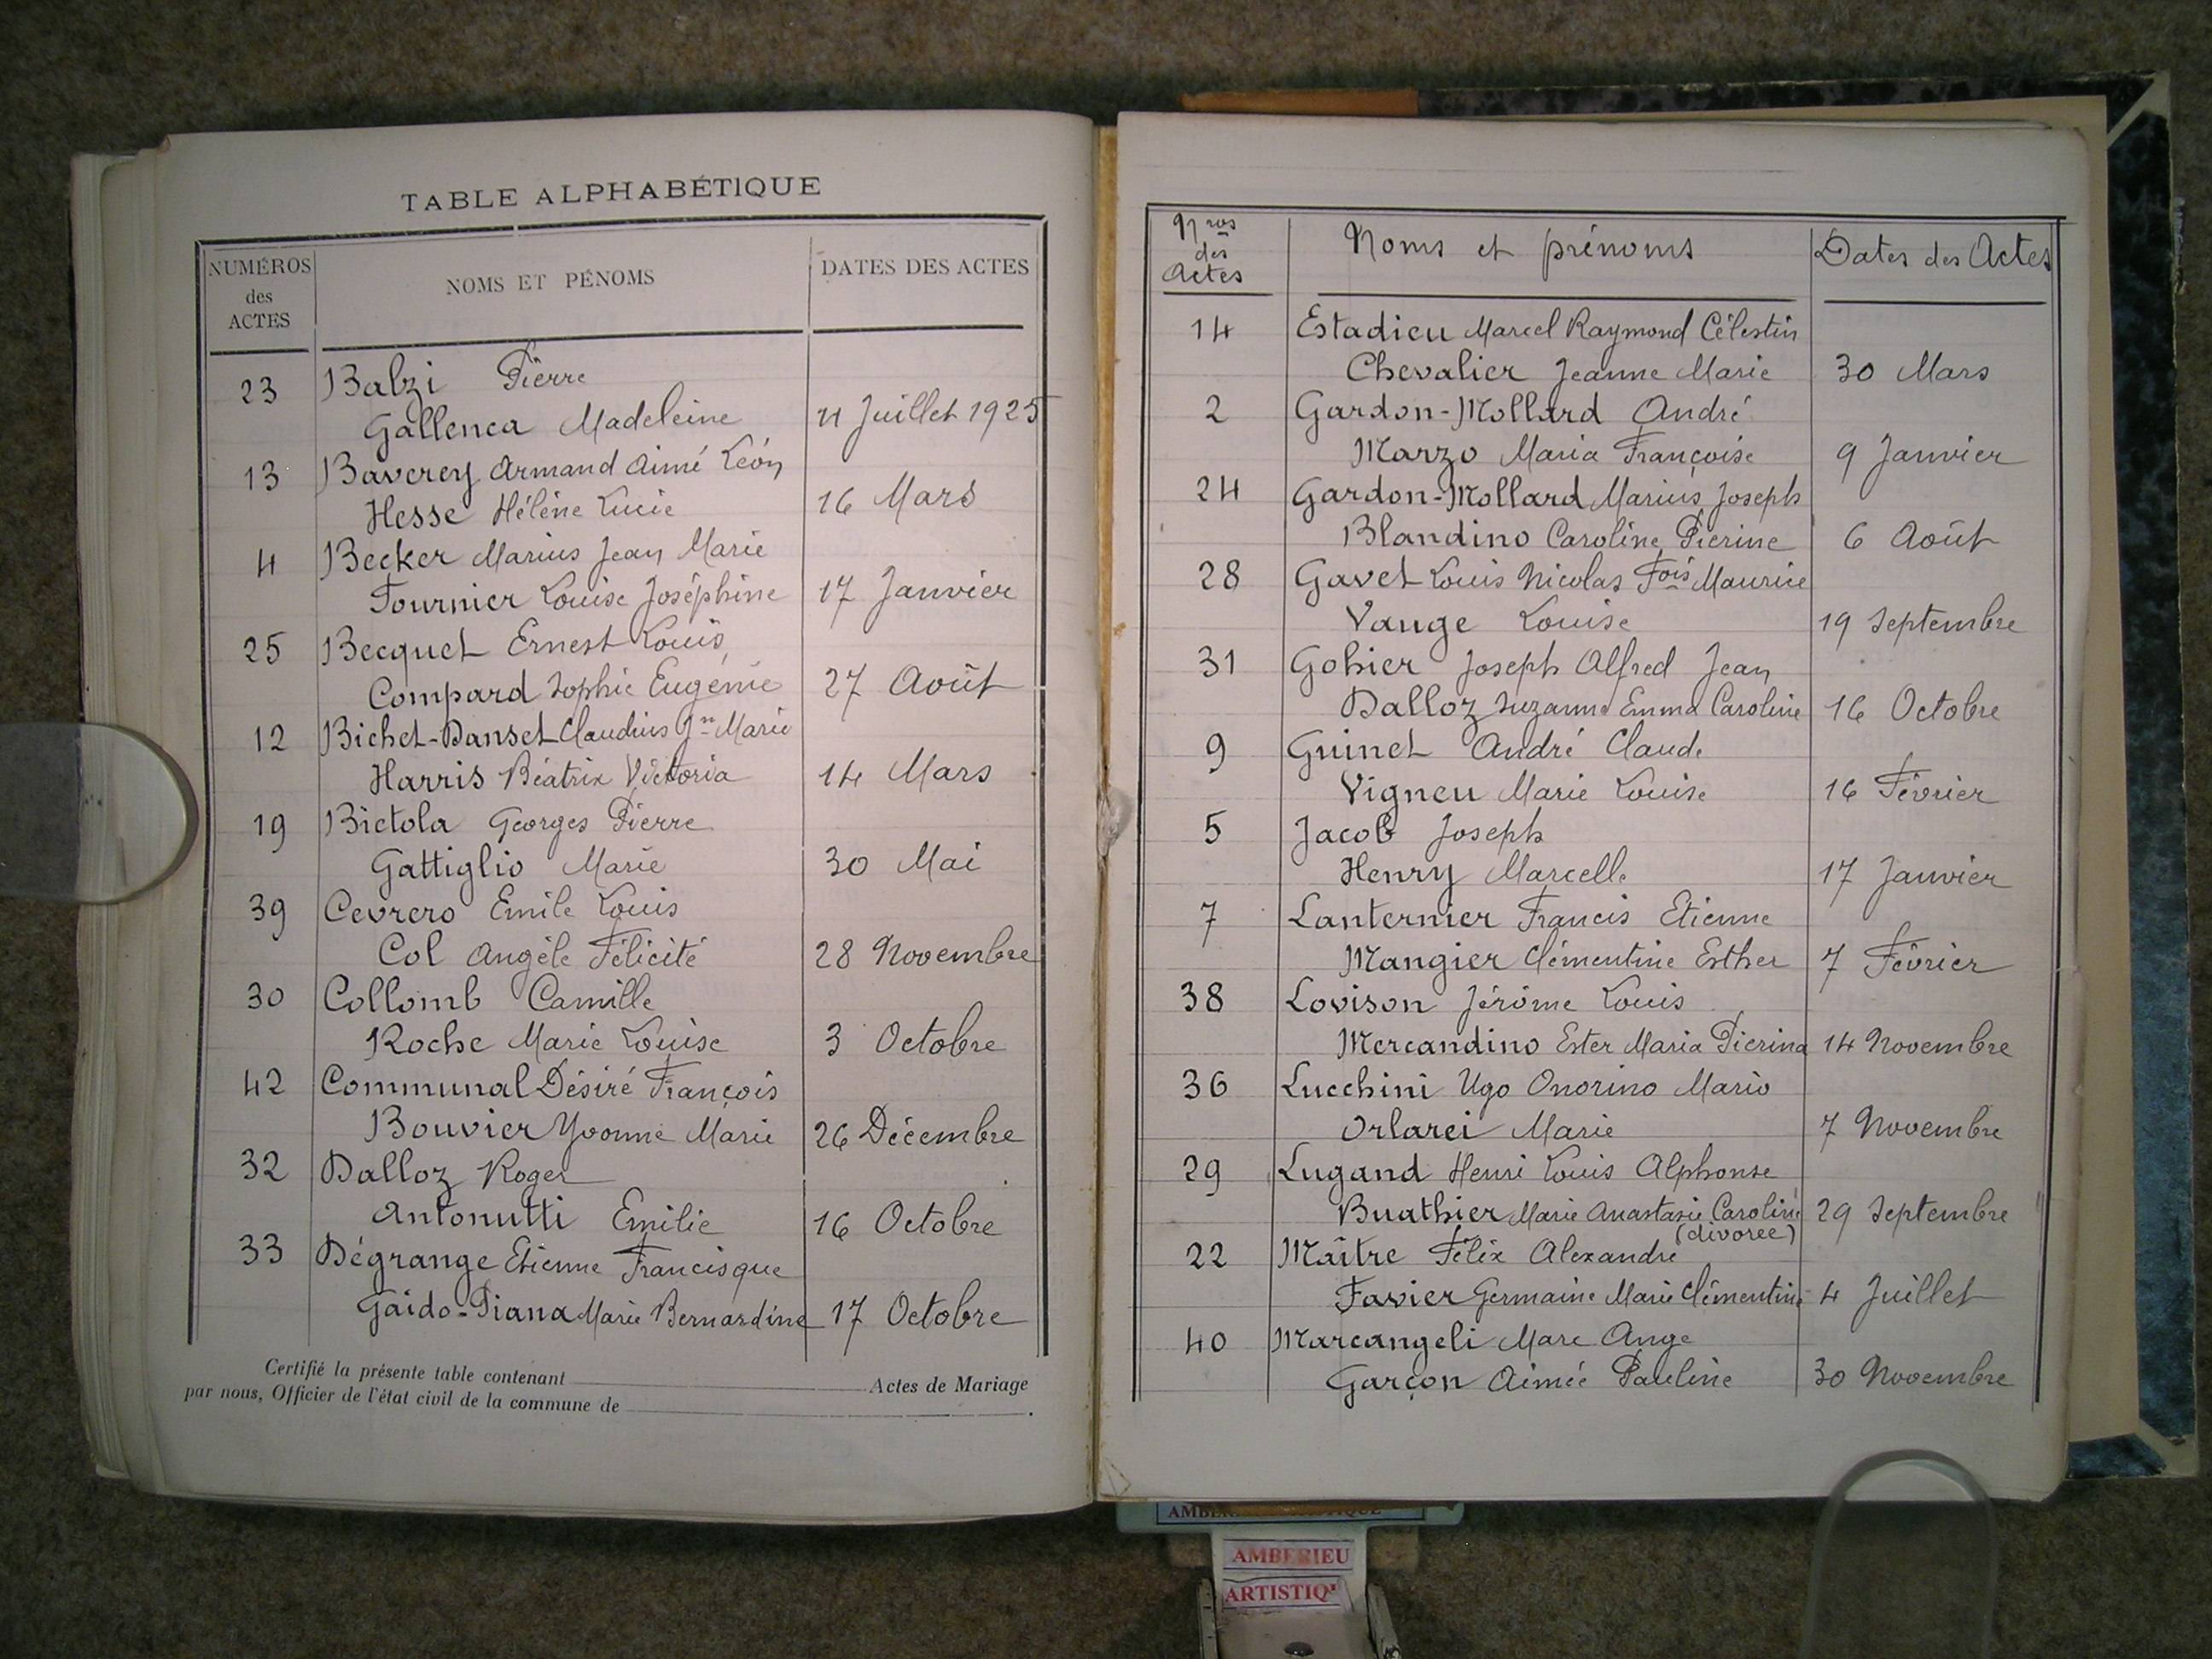 TABLE ALPHABÉTIQUE
NUMÉROS des ACTES
NOMS ET PÉNOMS
DATES DES ACTES
23 Balzi Pierre
Gallenca Madeleine 11 Juillet 1925
13 Baverey Armand Aimé Léon
Hesse Hélène Lucie 16 Mars
4 Becker Marius Jean Marie
Fournier Louise Joséphine 17 Janvier
25 Becquet Ernest Louis
Compard Sophie Eugénie 27 Août
12 Bichet-Danset Claudius Jn Marie
Harris Béatrix Victoria 14 Mars
19 Bietola Georges Pierre
Gattiglio Marie 30 Mai
39 Cevrero Emile Louis
Col Angèle Félicité 28 Novembre
30 Collomb Camille
Roche Marie Louise 3 Octobre
42 Communal Désiré François
Bouvier Yvonne Marie 26 Décembre
32 Dalloz Roger
Antonutti Emilie 16 Octobre
33 Dégrange Etienne Francisque
Gaido-Piana Marie Bernardine 17 Octobre
Certifié la présente table contenant Actes de Mariage
par nous, Officier de l'état civil de la commune de .
Nros des Actes
Noms et prénoms
Dates des Actes
14 Estadieu Marcel Raymond Célestin
Chevalier Jeanne Marie 30 Mars
2 Gardon-Mollard André
Marzo Maria Françoise 9 Janvier
24 Gardon-Mollard Marius Joseph
Blandino Caroline Pierine 6 Août
28 Gavet Louis Nicolas Fois Maurice
Vauge Louise 19 Septembre
31 Gohier Joseph Alfred Jean
Dalloz Suzanne Emma Caroline 16 Octobre
9 Guinet André Claude
Vigneu Marie Louise 16 Février
5 Jacob Joseph
Henry Marcelle 17 Janvier
7 Lanternier Francis Etienne
Mangier Clémentine Esther 7 Février
38 Lovison Jérôme Louis
Mercandino Ester Maria Pierina 14 Novembre
36 Lucchini Ugo Onorino Mario
Orlarei Marie 7 Novembre
29 Lugand Henri Louis Alphonse
Buathier Marie Anastasie Caroline 29 Septembre
(divorcée)
22 Maître Félix Alexandre
Favier Germaine Marie Clémentine 4 Juillet
40 Marcangeli Marc Ange
Garçon Aimée Pauline 30 Novembre
AMBERIEU
ARTISTIQ